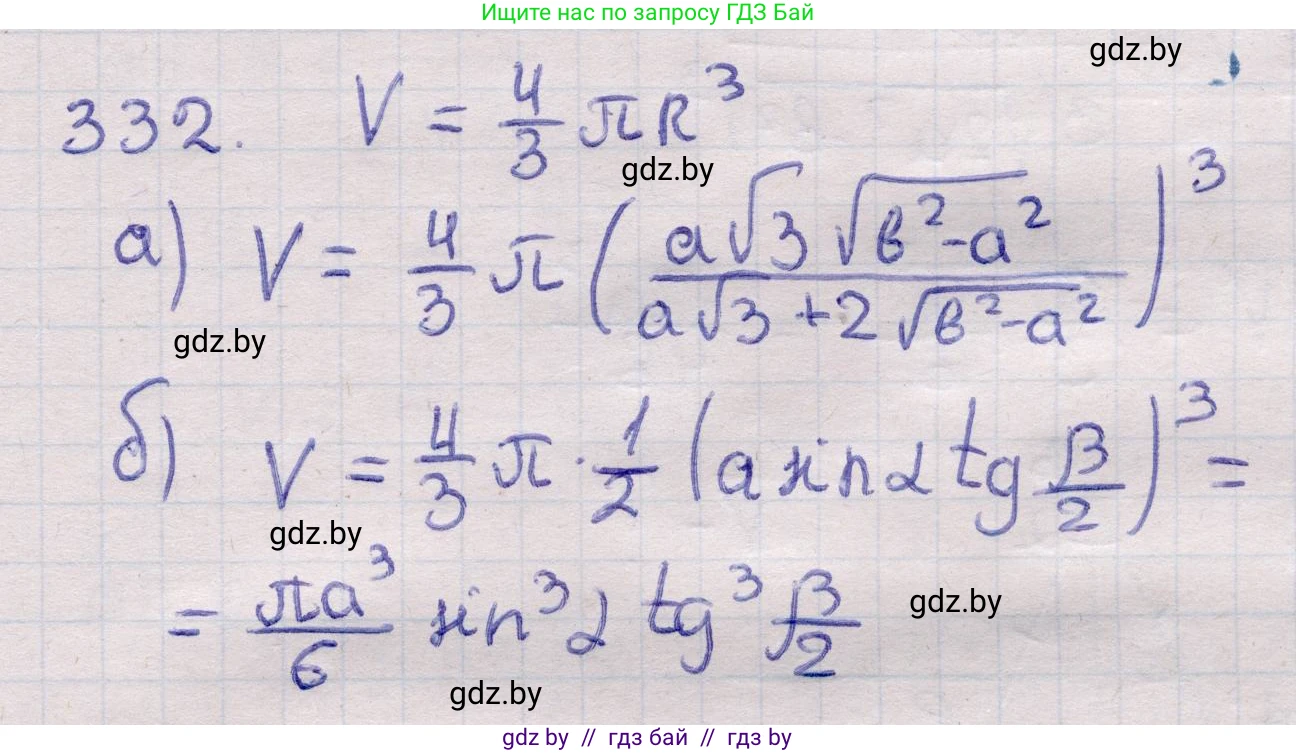 Ищите нас по запросу ГДЗ Бай
gdz.by
332. V = 4/3 πR³
gdz.by
а) V = 4/3 π (a√3 √(в²-a²) / a√3 + 2√(в²-a²))³
gdz.by
б) V = 4/3 π · 1/2 (a sin α tg β/2)³ =
gdz.by
= πa³/6 sin³ α tg³ β/2
gdz.by
gdz.by
gdz by // гдз бай // гдз by